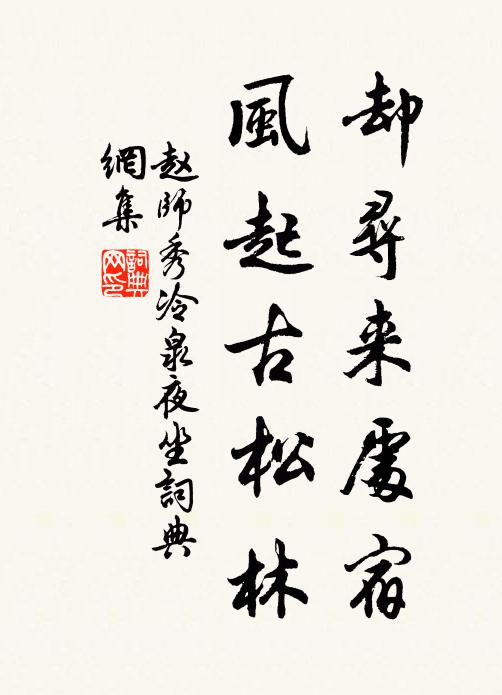 却尋来處宿
風起古松林
赵師秀冷泉夜坐詞典
網集
詞典网印